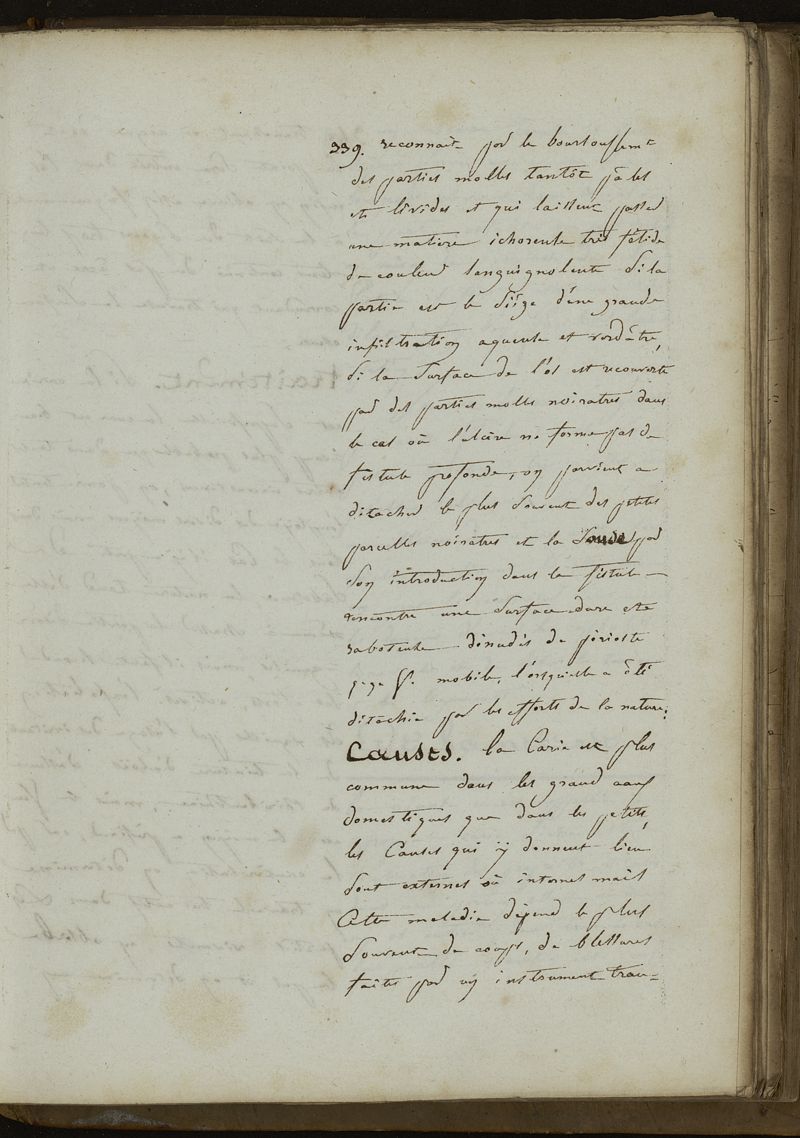 339. reconnait par le boursouflemt
des parties molles tantôt pâles
et livides et qui laissent passer
une matiere ichoreuse très fétide
de couleur sanguignolente si la
partie est le siège d'une grande
infiltration aqueuse et verdâtre,
si la surface de l'os est recouverte
par des parties molles noiratres dans
le cas où l'ulcère ne forme pas de
fistule profonde, on parvient a
détacher le plus souvent des petites
parcelles noiratres et la Sonde par
son introduction dans la fistule
rencontre une surface dure et
raboteuse dénudés de périoste
mobile, l'orsquelle a été
détachée par les efforts de la nature:
Causes. la Carie est plus
commune dans les grand
domestiques que dans les petits,
les Causes qui y donnent lieu
sont externes où internes mais
Cette maladie dépend le plus
souvent de coups, de blessures
faites par un instrument tran=